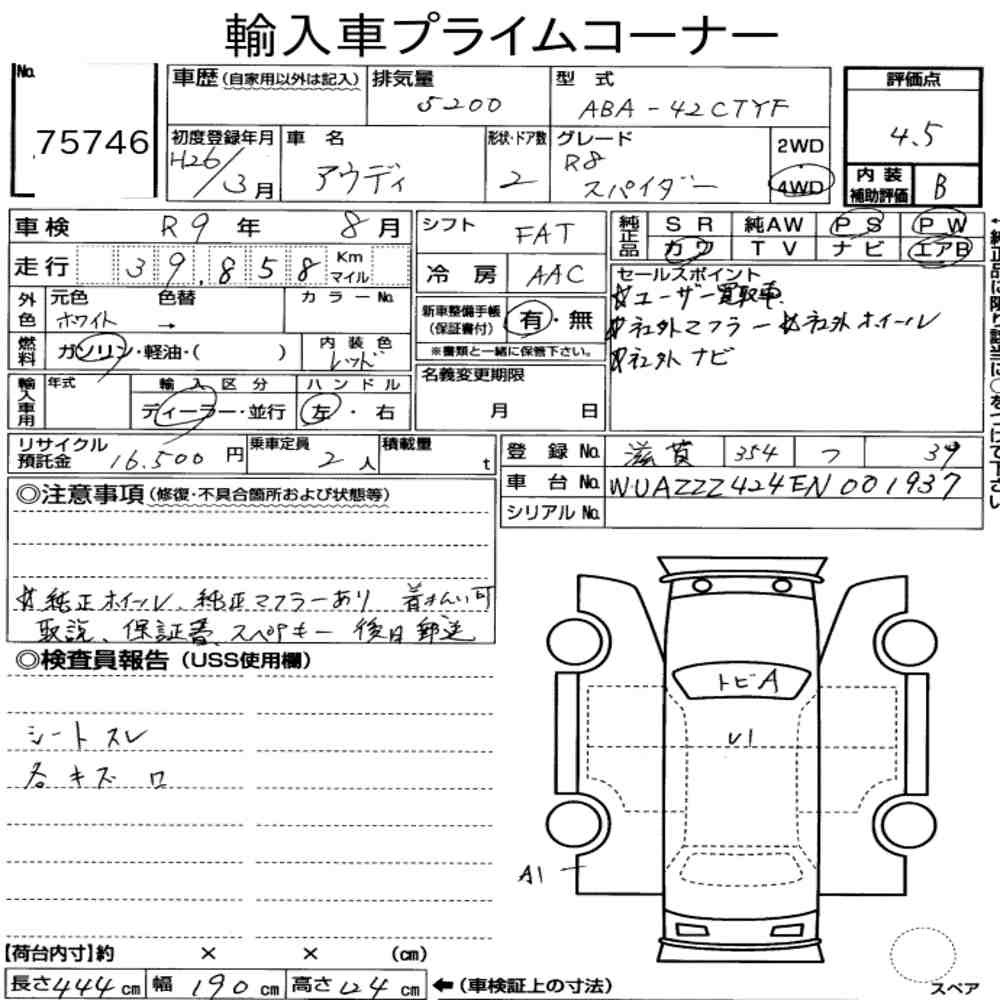 輸入車プライムコーナー
No. 75746
車歴(自家用以外は記入) 排気量 5200 型式 ABA-42CTYF
初度登録年月 H26/3月 車名 アウディ 形状・ドア数 2 グレード R8 スパイダー 2WD 4WD
評価点 4.5
内装補助評価 B
車検 R9年 8月
走行 39,858 Km マイル
外色 元色 ホワイト 色替 → カラーNo.
燃料 ガソリン・軽油・( ) 内装色 レッド
輸入車用 年式 輸入区分 ディーラー・並行 ハンドル 左・右
シフト FAT
冷房 AAC
新車整備手帳(保証書付) 有・無
※書類と一緒に保管下さい。
名義変更期限 月 日
純正品 SR 純AW PS PW
カワ TV ナビ エアB
セールスポイント
☆ユーザー買取車
☆社外マフラー ☆社外ホイール
☆社外ナビ
←純正品に限り該当に○をつけて下さい
リサイクル預託金 16,500円 乗車定員 2人 積載量 t
登録No. 滋賀 354 つ 39
車台No. WUAZZZ424EN001937
シリアルNo.
◎注意事項(修復・不具合箇所および状態等)
☆純正ホイール、純正マフラーあり 着払い可
取説、保証書、スペアキー 後日郵送
◎検査員報告(USS使用欄)
シートスレ
各キズ ロ
トビA
U1
A1
【荷台内寸】約 × × (cm)
長さ444cm 幅190cm 高さ124cm ←(車検証上の寸法)
スペア